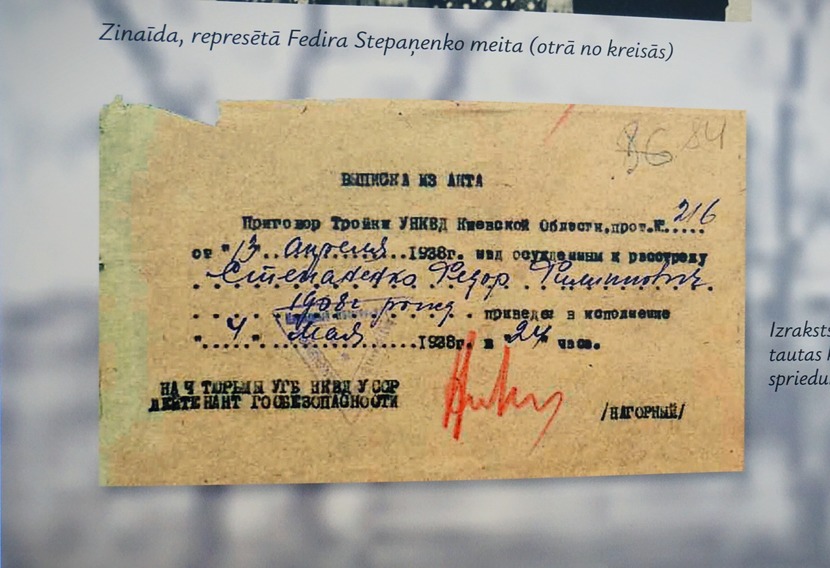 Zinaīda, represētā Fedira Stepaņenko meita (otrā no kreisās)
86 84
ВЫПИСКА ИЗ АКТА
Приговор Тройки УНКВД Киевской Области,прот.№.216....
от "13..апреля...1938г. над осужденным к расстрелу
Степаненко Федор Филиппович
1908г рожд. . приведен в исполнение
"..4.." Мая.....1938г. в "24" часа.
НАЧ ТЮРЬМЫ УГБ НКВД УССР
ЛЕЙТЕНАНТ ГОСБЕЗОПАСНОСТИ
/НАГОРНЫЙ/
Izraksts
tautas
spriedu